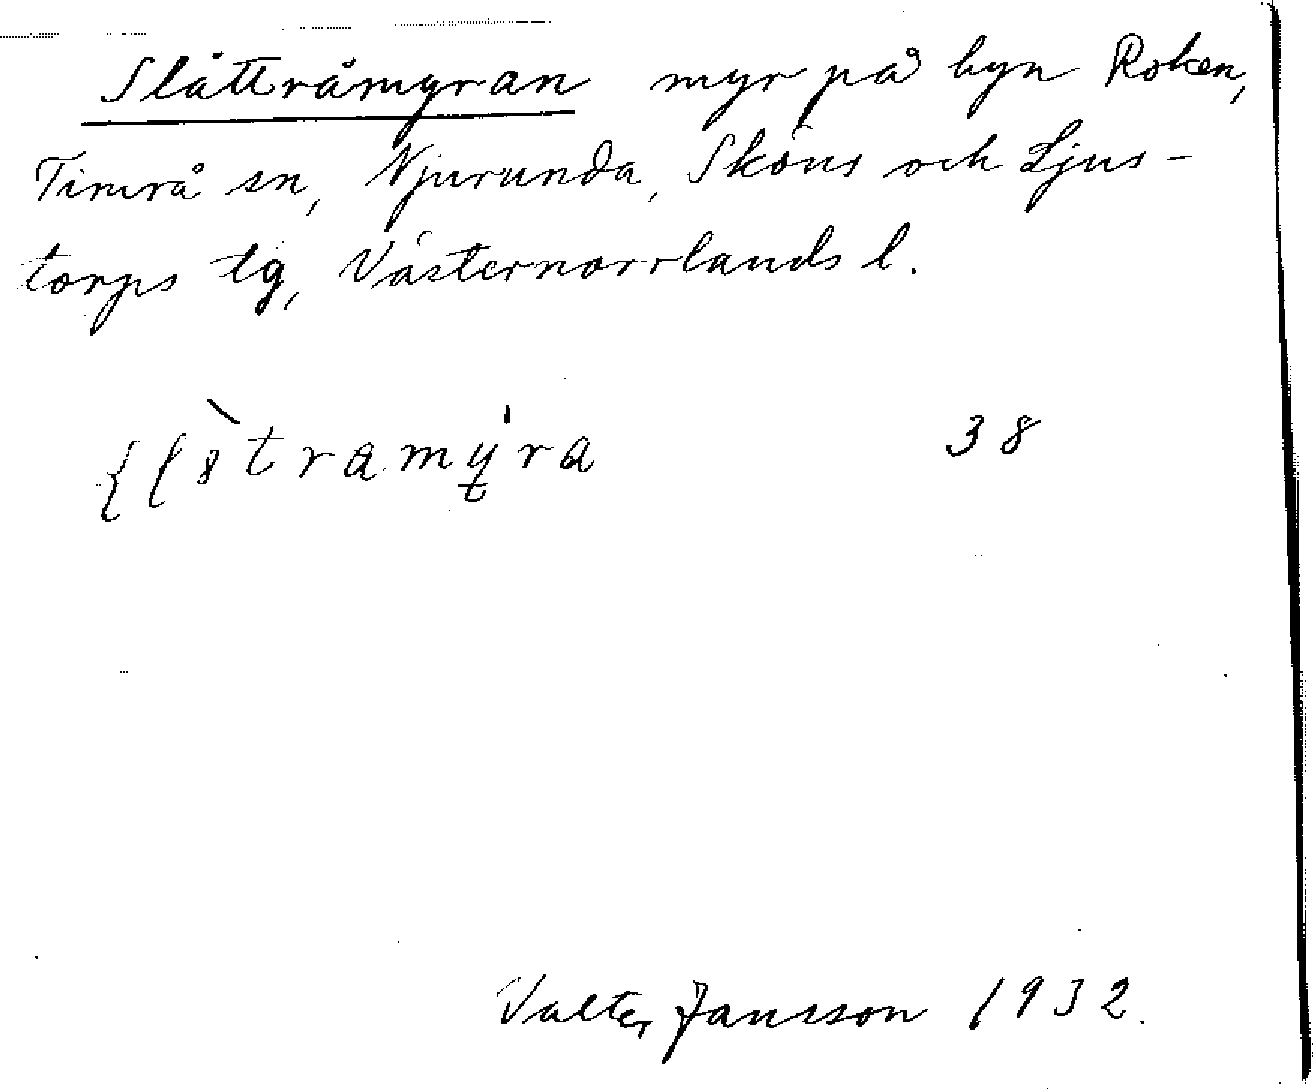 Slåttråmyran myr på byn Roken,
Timrå sn, Njurunda, Sköns och Ljus-
torps tg, Västernorrlands l.
38
Valter Jansson 1932.